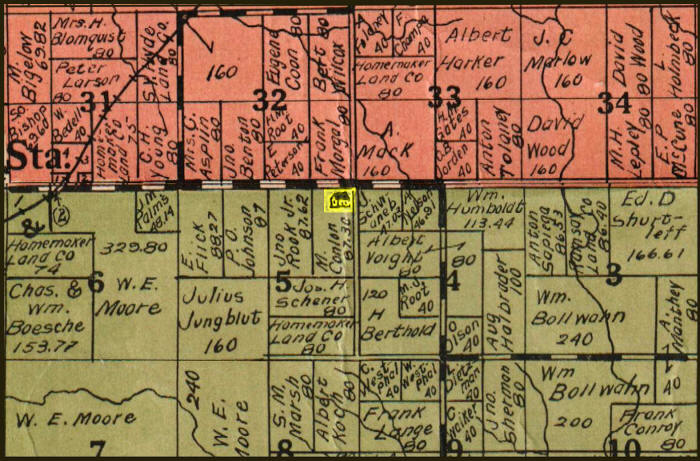 Mrs. H.
Blomquist
80
M.
Bigelow
69.82
Peter
Larson
80
31
So.
Bishop
69.60
W.
Bedell
40
Homemaker
Land Co
75
S. Wade
Land Co.
80
C. H.
Young
80
Sta.
160
Eugene
Coon
80
Bert
Wilcox
80
32
Mrs. C.
Asplin
80
Jno.
Benton
80
H.M.
Root
40
E.
Peterson
40
Frank
80
A
40
F.
40
Homemaker
Land Co
80
Albert
Harker
160
J. C
Marlow
160
33
A.
Mack
160
H.
Gates
40
O.B.
Jorden
40
Anton
80
David
Wood
160
34
David
Wood
80
L
Holmbeck
80
M. H.
Lepley
80
E. P
McCune
80
&
2
J.M.
Palms
48.14
Homemaker
Land Co
74
329.80
6
W. E.
Moore
Chas. &
Wm.
Boesche
153.77
E.
Flick
88.27
P. O.
Johnson
87
Jno
Rook Jr.
87.62
M.
Conlan
87.30
5
Julius
Jungblut
160
Jos. H
Schener
80
Homemaker
Land Co
80
Albert
Voight
80
120
H
Berthold
M.J.
Root
40
Wm.
Humboldt
113.44
80
4
O
Olson
40
Aug
Haldrader
100
Anton
Sorga
86.53
Ramsay
Land Co
86.40
3
Ed. D
Shurt-
leff
166.61
Wm.
Bollwahn
240
A.
Manthey
80
W. E. Moore
7
240
W. E.
Moore
S. M.
Marsh
80
Albert
Koch
80
8
C.
West
phal
40
W.
West
phal
40
Frank
Lange
80
L
Dietz
man
40
C.
Walker
40
9
Jno.
Sherman
80
Wm
Bollwahn
200
40
Frank
Conroy
80
10